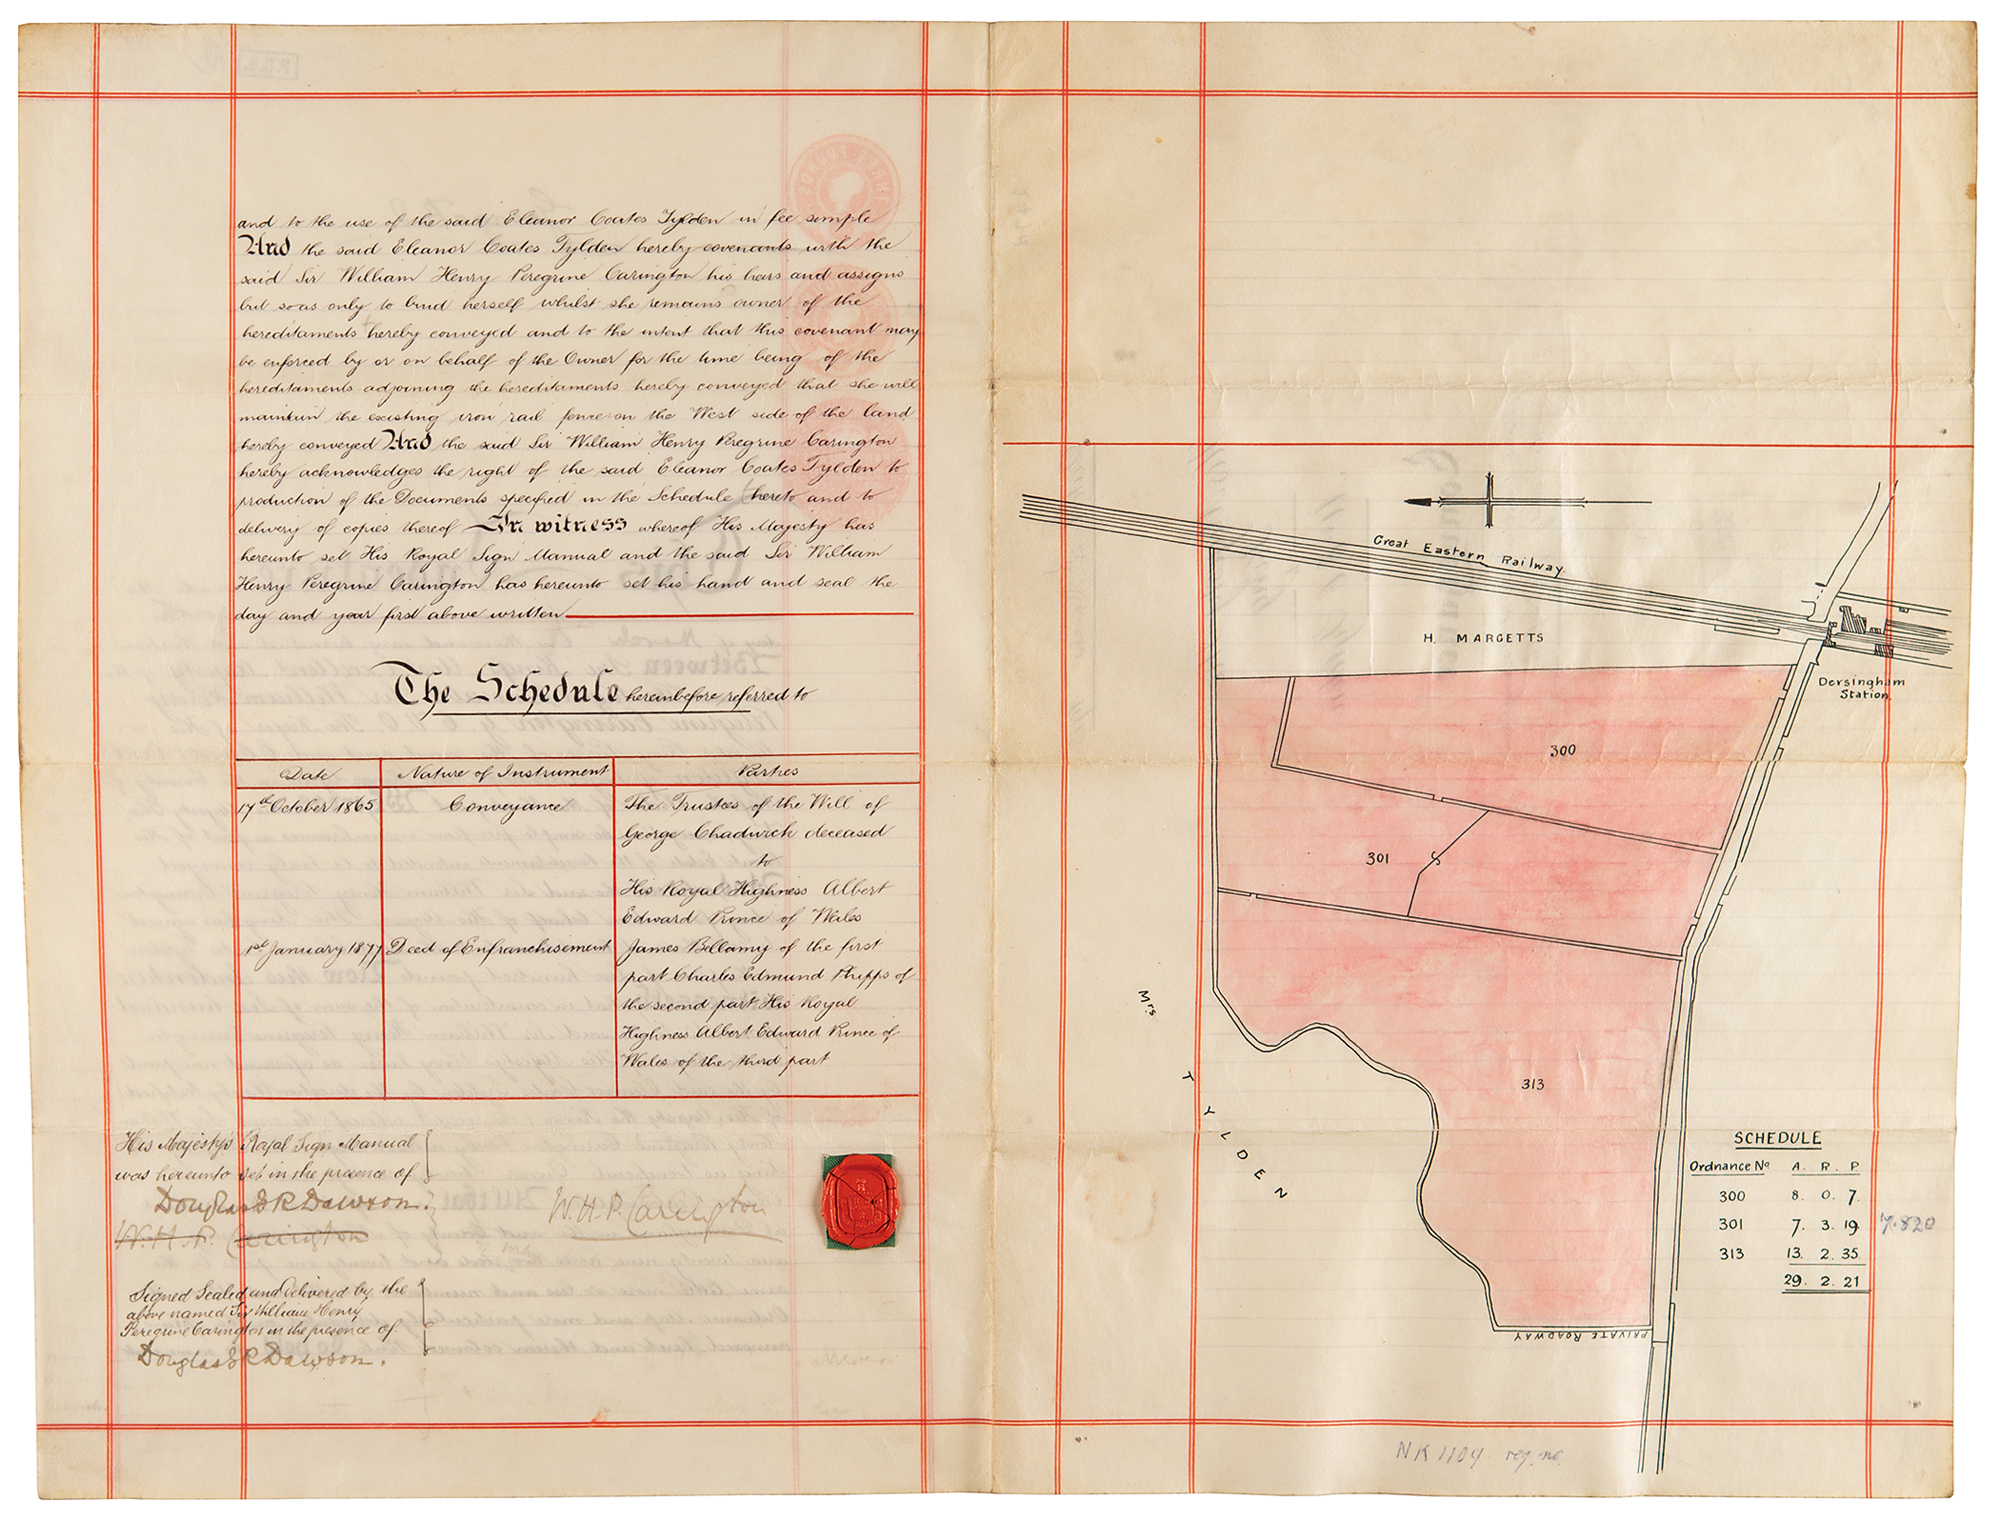 and to the use of the said Eleanor Coates Tylden in fee simple
And the said Eleanor Coates Tylden hereby covenants with the
said Sir William Henry Peregrine Carington his heirs and assigns
but so as only to bind herself whilst she remains owner of the
hereditaments hereby conveyed and to the intent that this covenant may
be enforced by or on behalf of the Owner for the time being of the
hereditaments adjoining the hereditaments hereby conveyed that she will
maintain the existing iron rail fence on the West side of the land
hereby conveyed And the said Sir William Henry Peregrine Carington
hereby acknowledges the right of the said Eleanor Coates Tylden to
production of the Documents specified in the Schedule hereto and to
delivery of copies thereof In witness whereof His Majesty has
hereunto set His Royal Sign Manual and the said Sir William
Henry Peregrine Carington has hereunto set his hand and seal the
day and year first above written
The Schedule hereinbefore referred to
Date Nature of Instrument Parties
17th October 1865 Conveyance The Trustees of the Will of
George Chadwick deceased
to
His Royal Highness Albert
Edward Prince of Wales
1st January 1877 Deed of Enfranchisement James Bellamy of the first
part Charles Edmund Phipps of
the second part His Royal
Highness Albert Edward Prince of
Wales of the third part
His Majesty's Royal Sign Manual
was hereunto set in the presence of
Douglas F R Dawson.
W.H.P. Carington
W.H.P. Carington
Signed Sealed and Delivered by the
above named Sir William Henry
Peregrine Carington in the presence of
Douglas F R Dawson.
Great Eastern Railway.
H. MARGETTS
Dersingham
Station
300
301
S
313
Mrs TYLDEN
PRIVATE ROADWAY
SCHEDULE
Ordnance No. A. R. P.
300 8. 0. 7.
301 7. 3. 19. 7.820
313 13. 2. 35
29. 2. 21
NK 1109 reg. no.